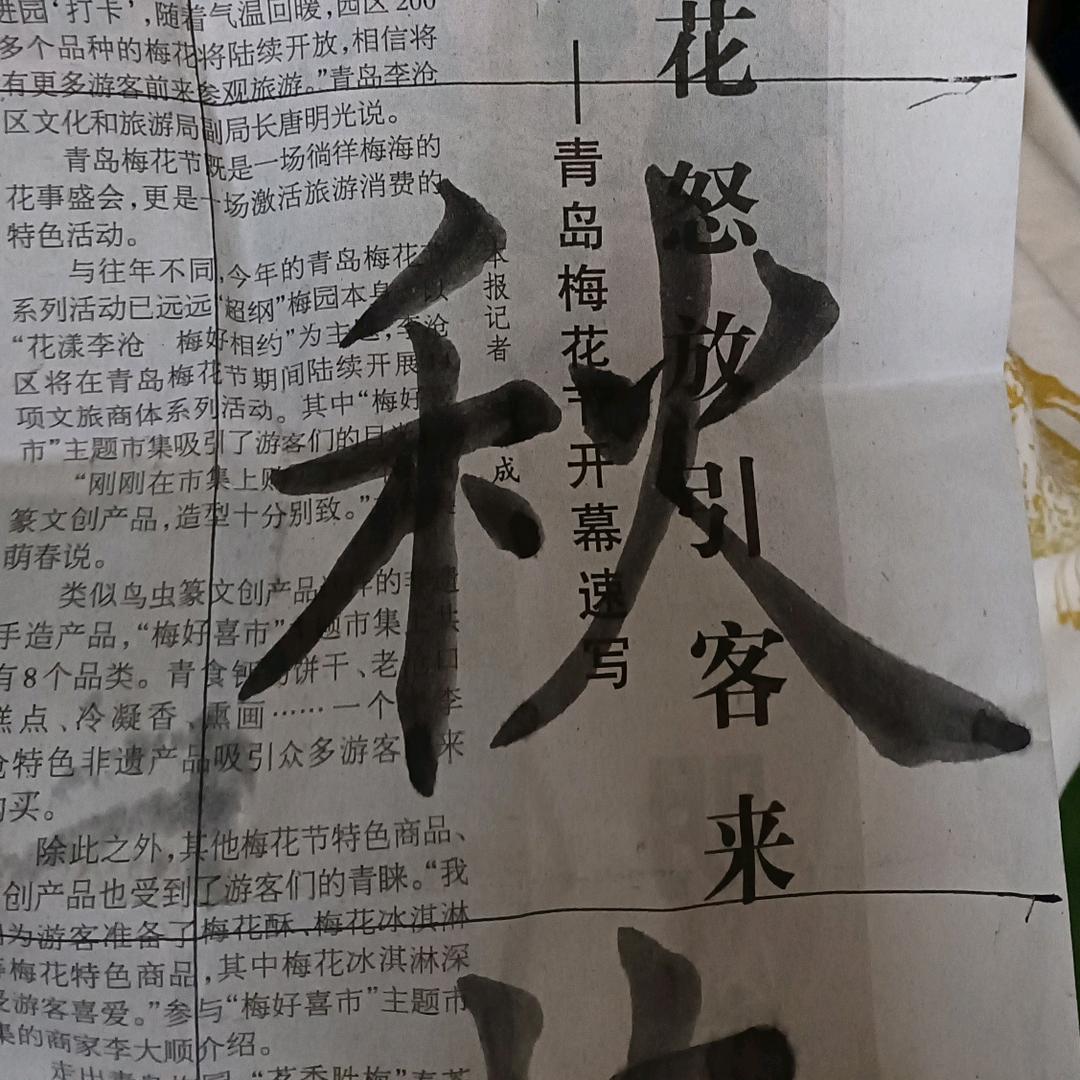 花怒放引客来
——青岛梅花节开幕速写
本报记者
成
进园‘打卡’,随着气温回暖,西区200
多个品种的梅花将陆续开放,相信将
有更多游客前来参观旅游。”青岛李沧
区文化和旅游局副局长唐明光说。
青岛梅花节既是一场徜徉梅海的
花事盛会,更是一场激活旅游消费的
特色活动。
与往年不同,今年的青岛梅花
系列活动已远远“超纲”梅园本身 以
“花漾李沧 梅好相约”为主 ,李沧
区将在青岛梅花节期间陆续开展
项文旅商体系列活动。其中“梅好
市”主题市集吸引了游客们的目
“刚刚在市集上购
篆文创产品,造型十分别致。”
萌春说。
类似鸟虫篆文创产品 样的非遗
手造产品,“梅好喜市”主题市集 共
有8个品类。青食钙奶饼干、老 口
糕点、冷凝香、熏画……一个 李
沧特色非遗产品吸引众多游客 来
购买。
除此之外,其他梅花节特色商品、
创产品也受到了游客们的青睐。“我
们为游客准备了梅花酥、梅花冰淇淋
等梅花特色商品,其中梅花冰淇淋深
受游客喜爱。”参与“梅好喜市”主题市
集的商家李大顺介绍。
走出青岛 “花香胜梅”
秋